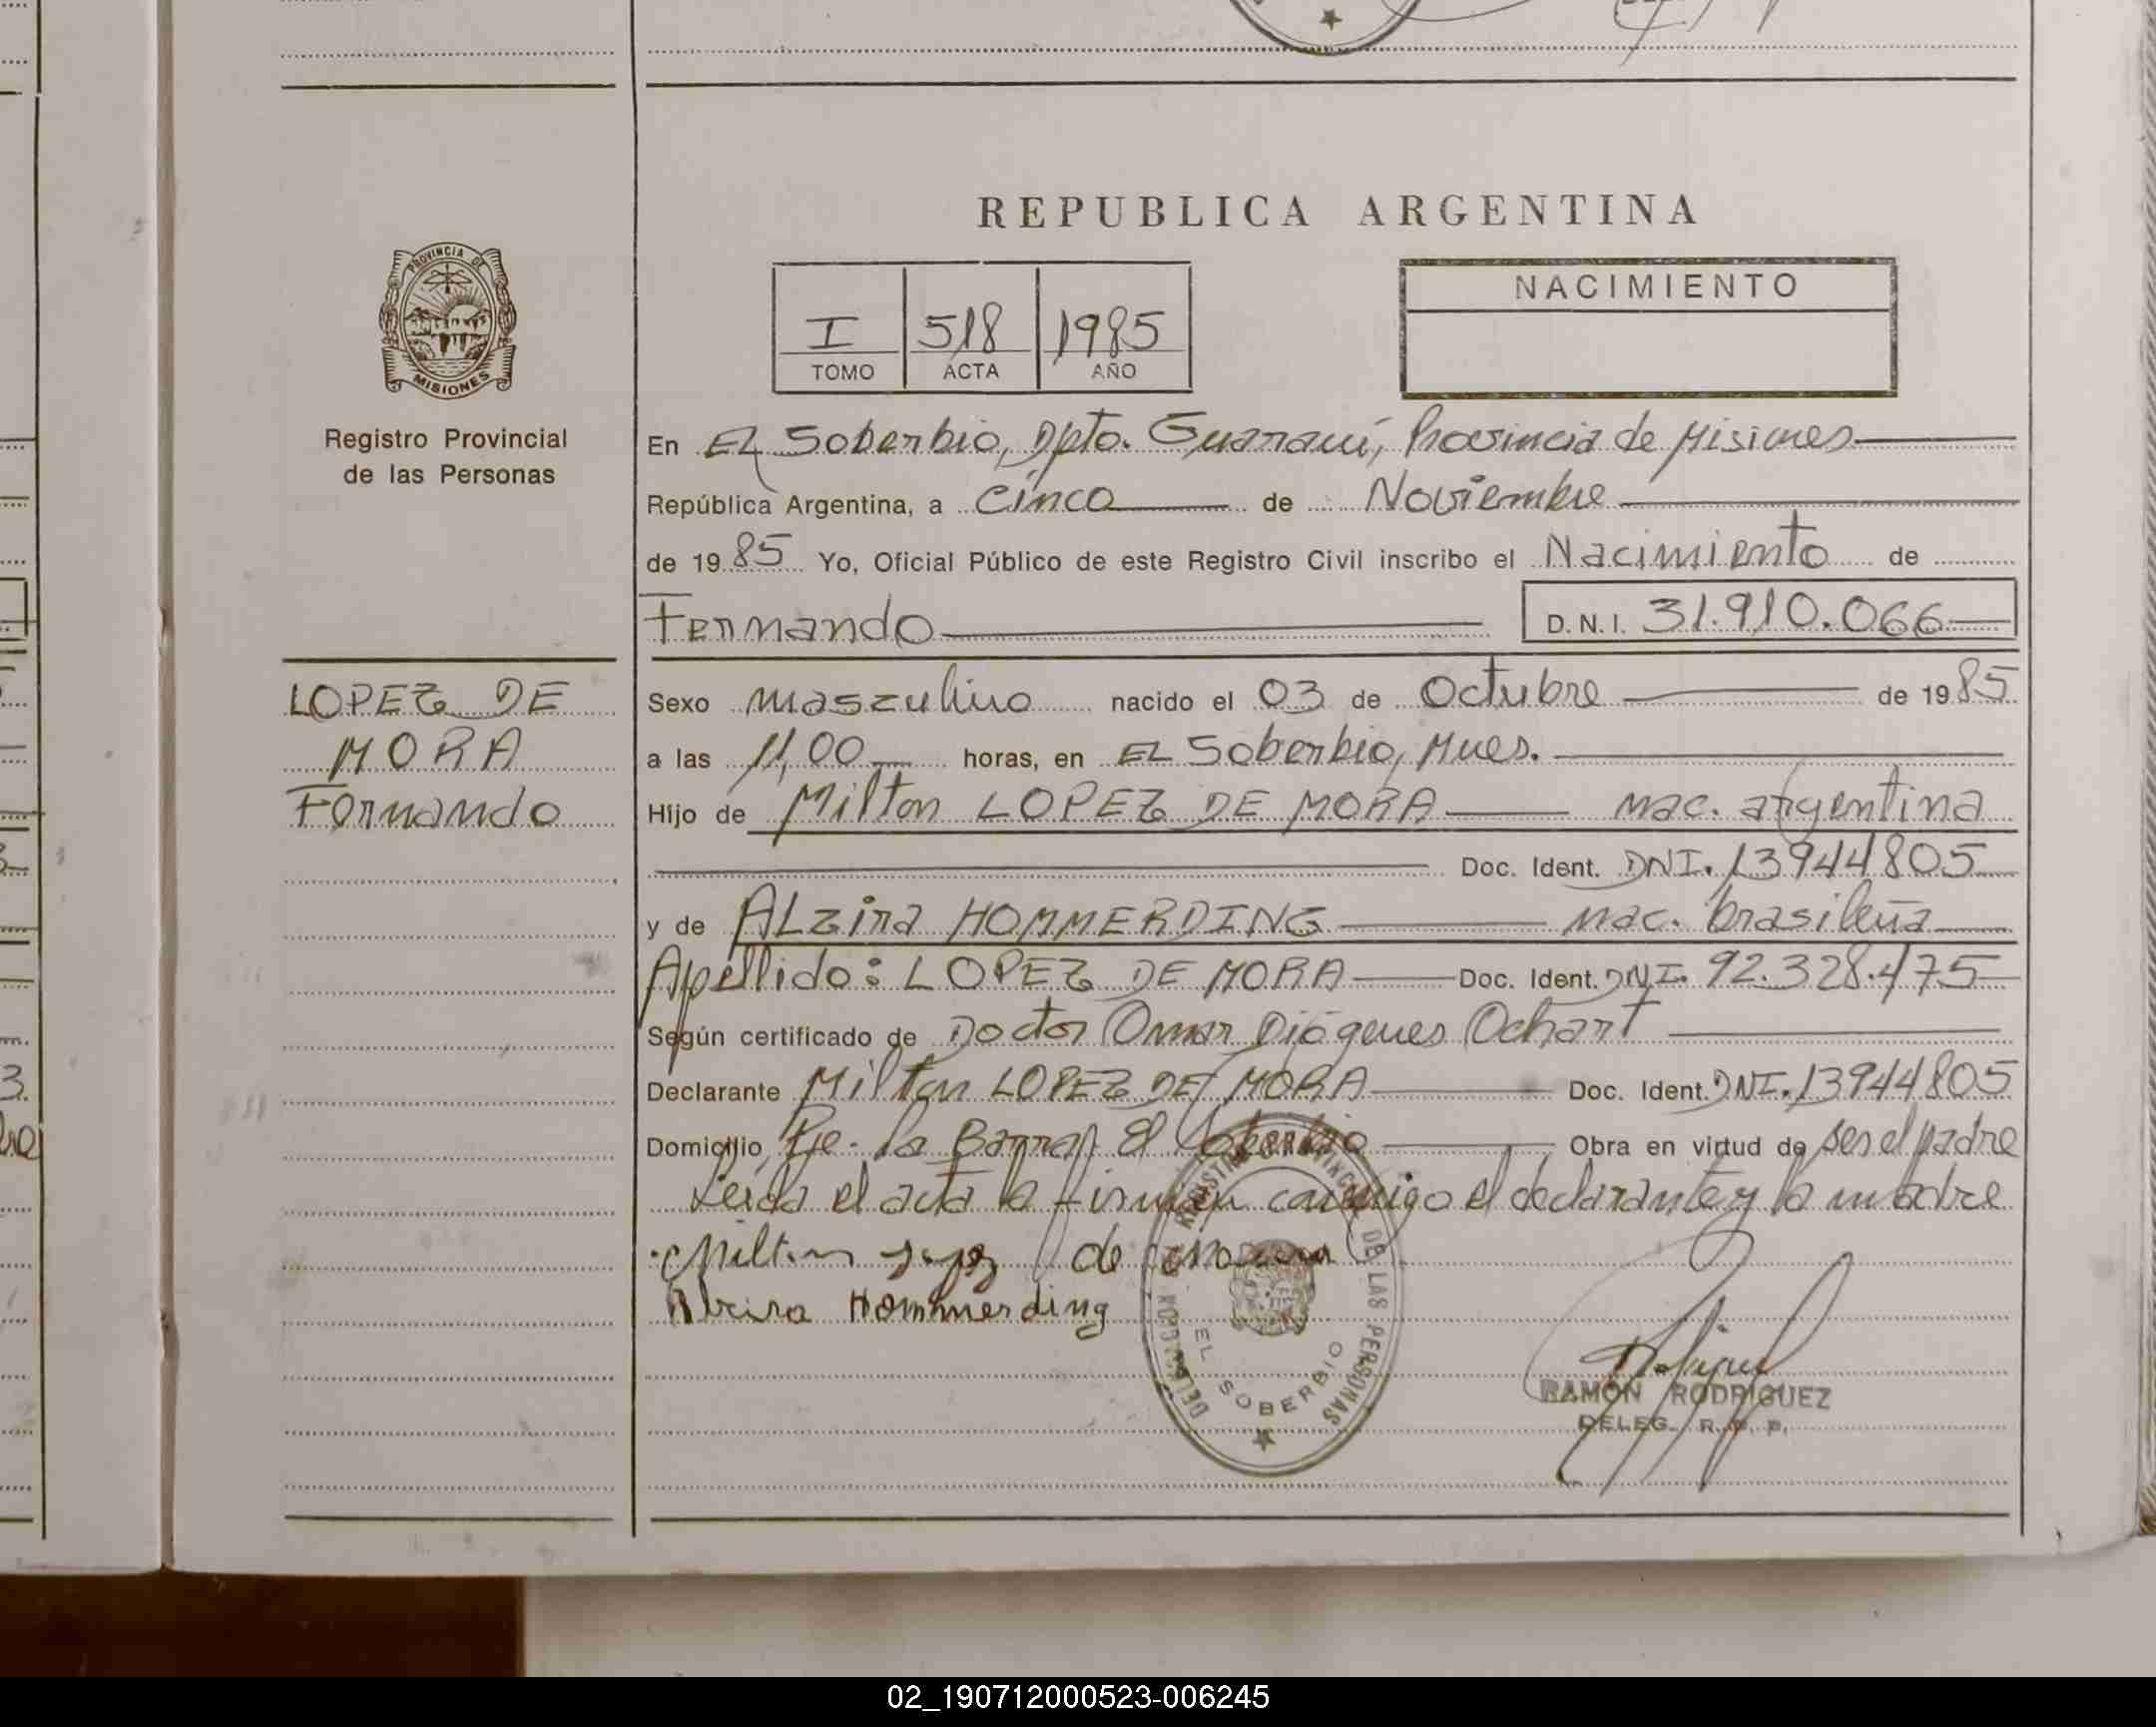 REPUBLICA ARGENTINA
PROVINCIA DE
MISIONES
Registro Provincial
de las Personas
I 518 1985
TOMO ACTA AÑO
NACIMIENTO
En EL Soberbio, Dpto. Guaraní, Provincia de Misiones
República Argentina, a Cinco de Noviembre
de 1985 Yo, Oficial Público de este Registro Civil inscribo el Nacimiento de
Fernando D.N.I. 31.910.066
LOPEZ DE
MORA
Fernando
Sexo masculino nacido el 03 de Octubre de 1985
a las 11,00 horas, en EL Soberbio, Mnes.
Hijo de Milton LOPEZ DE MORA nac. argentina
Doc. Ident. DNI. 13944805
y de ALzira HOMMERDING nac. brasileña
Apellido: LOPEZ DE MORA Doc. Ident. DNI. 92.328.475
Según certificado de Doctor Omar Diógenes Ochart
Declarante Milton LOPEZ DE MORA Doc. Ident. DNI. 13944805
Domicilio, Pje. la Barra, El Soberbio Obra en virtud de ser el padre
Leída el acta la firman conmigo el declarante y la madre
Milton Lopez de mora
Alzira Hommerding
DELEGACION REGISTRO PROVINCIAL DE LAS PERSONAS
EL SOBERBIO
RAMON RODRIGUEZ
DELEG. R. P. P.
02_190712000523-006245